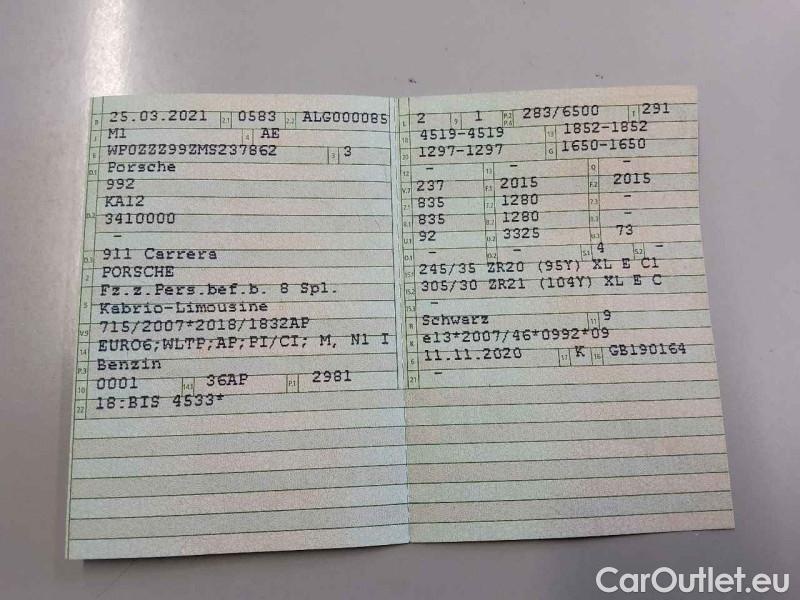 B 25.03.2021 2.1 0583 2.2 ALG000085
J M1 4 AE
E WP0ZZZ99ZMS237862 3 3
D.1 Porsche
992
KA12
D.2 3410000
-
D.3 911 Carrera
2 PORSCHE
5 Fz.z.Pers.bef.b. 8 Spl.
Kabrio-Limousine
V.9 715/2007*2018/1832AP
14 EURO6;WLTP;AP;PI/CI; M, N1 I
P.3 Benzin
10 0001 14.1 36AP P.1 2981
22 18:BIS 4533*
L 2 9 1 P.2 P.4 283/6500 T 291
18 4519-4519 19 1852-1852
20 1297-1297 G 1650-1650
12 - 13 - Q -
V.7 237 F.1 2015 F.2 2015
7.1 835 7.2 1280 7.3 -
8.1 835 8.2 1280 8.3 -
U.1 92 U.2 3325 U.3 73
O.1 - O.2 - S.1 4 S.2 -
15.1 245/35 ZR20 (95Y) XL E C1
15.2 305/30 ZR21 (104Y) XL E C
15.3 -
R Schwarz 11 9
K e13*2007/46*0992*09
6 11.11.2020 17 K 16 GB190164
21 -
CarOutlet.eu